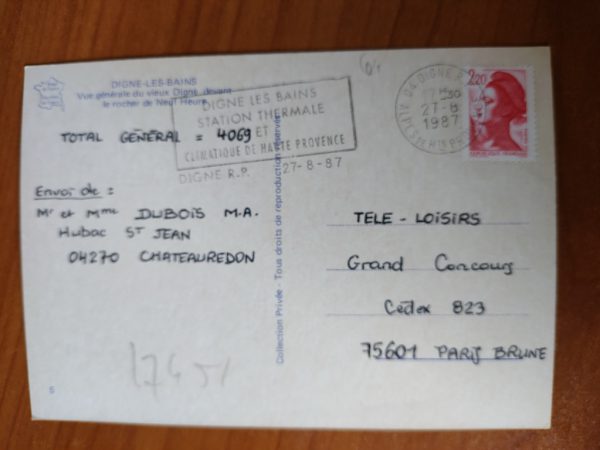 DIGNE-LES-BAINS
Vue générale du vieux Digne, devant
le rocher de Neuf Heure
DIGNE LES BAINS
STATION THERMALE
ET
CLIMATIQUE DE HAUTE PROVENCE
DIGNE R.P. 27-8-87
04 DIGNE R.P.
27-8
1987
2,20
TOTAL GÉNÉRAL = 4069
Envoi de :
Mr et Mme DUBOIS M.A.
Hubac ST JEAN
04270 CHATEAUREDON
Collection Privée - Tous droits de reproduction réservés
TELE - LOISIRS
Grand Concours
Cédex 823
75601 PARIS BRUNE
5